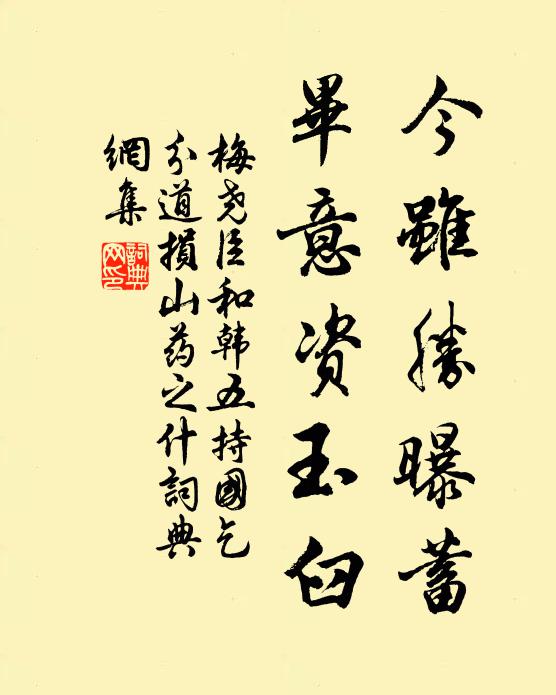 今雖勝曝蓄
畢意資玉臼
梅尧臣和韩五持國乞
分道損山药之什詞典
網集
詞典網印